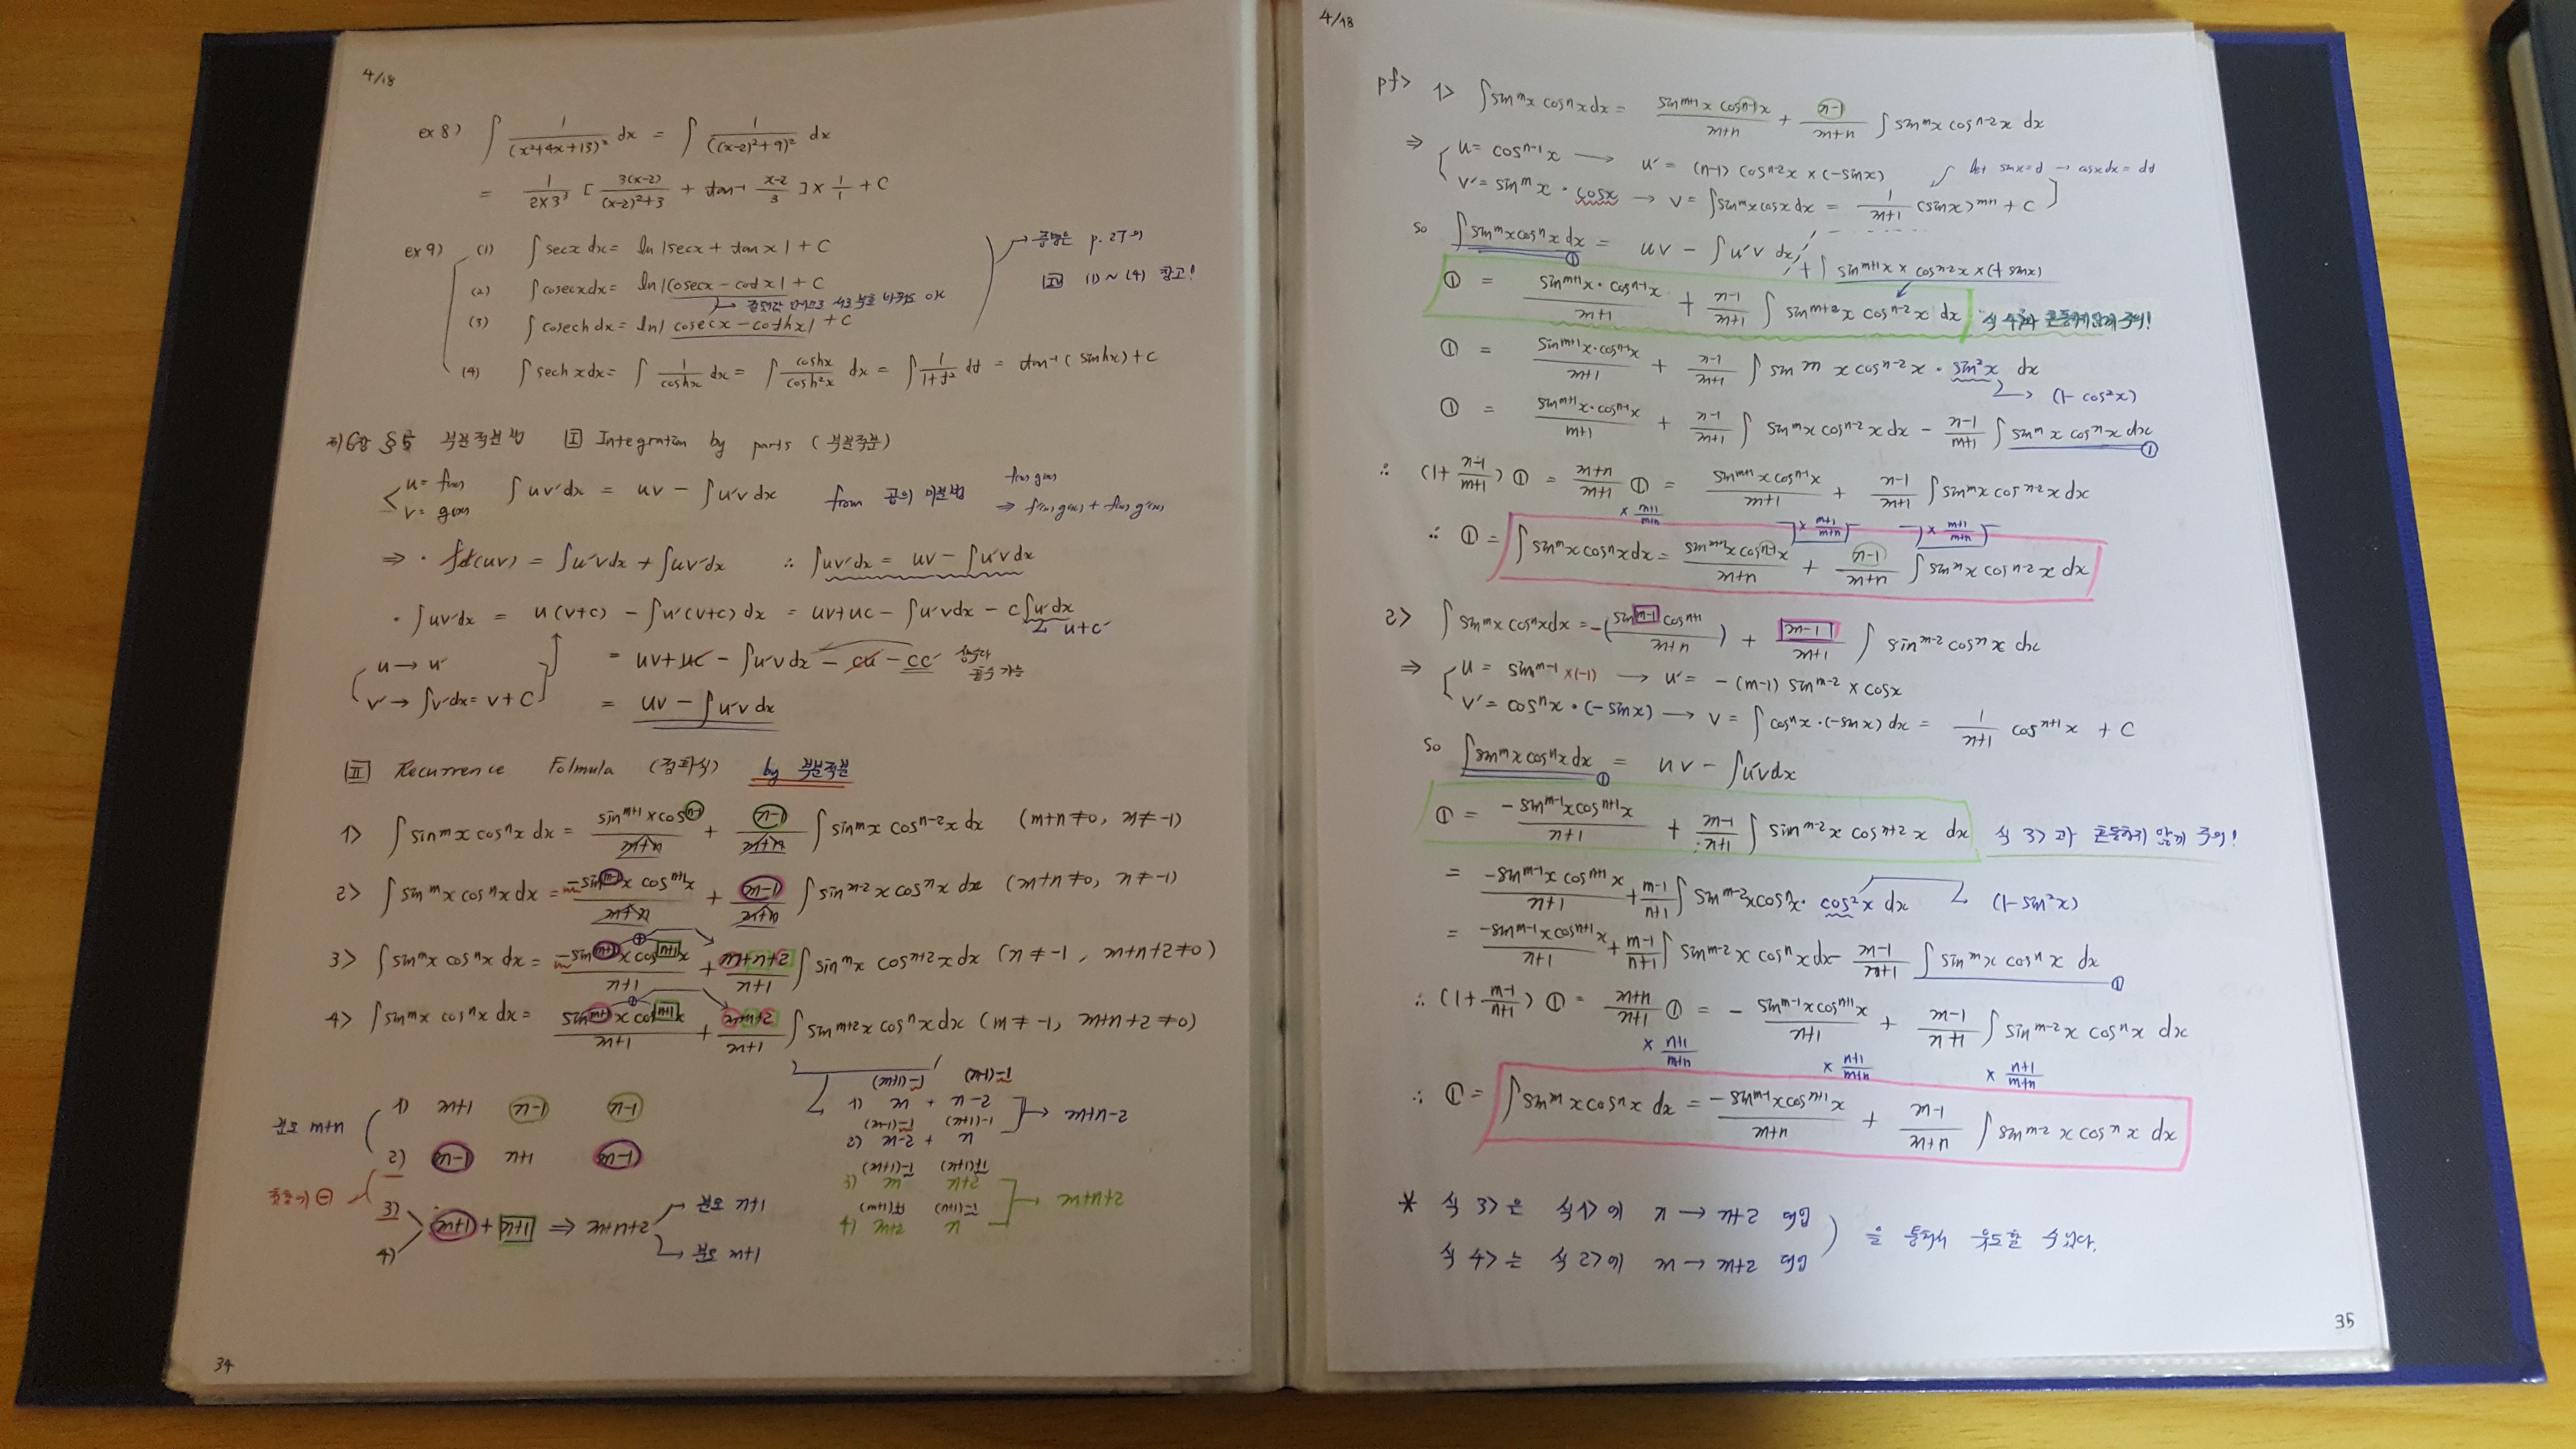 4/18
ex 8) ∫ 1/(x²+4x+13)² dx = ∫ 1/((x-2)²+9)² dx
= 1/(2×3³) [ 3(x-2)/((x-2)²+3) + tan⁻¹ (x-2)/3 ] × 1/1 + C
ex 9) (1) ∫ secx dx = ln|secx + tanx| + C
(2) ∫ cosecx dx = ln|cosecx - cotx| + C
(3) ∫ cosech dx = ln| cosecx - cothx| + C
(4) ∫ sech x dx = ∫ 1/coshx dx = ∫ coshx/cosh²x dx = ∫ 1/(1+t²) dt = tan⁻¹(sinhx) + C
→ 증명은 p. 27의
IV (1) ~ (4) 참고!
제6장 §5 부분적분법 I Integration by parts ( 부분적분 )
u = f(x)
v = g(x)
∫uv'dx = uv - ∫u'v dx from 곱의 미분법
f(x)g(x)
⇒ f'(x)g(x) + f(x)g'(x)
⇒ · ∫d(uv) = ∫u'vdx + ∫uv'dx ∴ ∫uv'dx = uv - ∫u'vdx
· ∫uv'dx = u(v+c) - ∫u'(v+c)dx = uv+uc - ∫u'vdx - c∫u'dx
u+c'
u → u'
v' → ∫v'dx = v + C
= uv+uc - ∫u'vdx - cu - cc' 상수라
흡수 가능
= uv - ∫u'vdx
II Recurrence Folmula (점화식) by 부분적분
1> ∫sin^m x cos^n x dx = (sin^(m+1) x cos^(n-1))/(m+n) + (n-1)/(m+n) ∫sin^m x cos^(n-2) x dx (m+n≠0, m≠-1)
2> ∫sin^m x cos^n x dx = (-sin^(m-1) x cos^(n+1) x)/(m+n) + (m-1)/(m+n) ∫sin^(m-2) x cos^n x dx (m+n≠0, n≠-1)
3> ∫sin^m x cos^n x dx = (-sin^(m+1) x cos^(n+1) x)/(n+1) + (m+n+2)/(n+1) ∫sin^m x cos^(n+2) x dx (n≠-1, m+n+2≠0)
4> ∫sin^m x cos^n x dx = (sin^(m+1) x cos^(n+1) x)/(m+1) + (m+n+2)/(m+1) ∫sin^(m+2) x cos^n x dx (m≠-1, m+n+2≠0)
분모 m+n
1) m+1 n-1 n-1
2) m-1 n+1 m-1
3)
4) m+1 + n+1 ⇒ m+n+2
분모 n+1
분모 m+1
-(m+1) -(n-1)
1) m + n-2
-(m-1) -(n+1)
2) m-2 + n
→ m+n-2
-(m+1) +(n+1)
3) m n+2
+(m+1) -(n+1)
4) m+2 n
→ m+n+2
34
4/18
pf> 1> ∫sin^m x cos^n x dx = (sin^(m+1) x cos^(n-1) x)/(m+n) + (n-1)/(m+n) ∫ sin^m x cos^(n-2) x dx
⇒ u = cos^(n-1) x → u' = (n-1) cos^(n-2) x × (-sinx) let sinx=t → cosxdx = dt
v' = sin^m x · cosx → v = ∫sin^m x cosx dx = 1/(m+1) (sinx)^(m+1) + C
so ∫sin^m x cos^n x dx ① = uv - ∫u'v dx
+∫ sin^(m+1) x × cos^(n-2) x × (+ sinx)
① = (sin^(m+1) x · cos^(n-1) x)/(m+1) + (n-1)/(m+1) ∫ sin^(m+2) x cos^(n-2) x dx 식 4>와 혼동하지 않게 주의!
① = (sin^(m+1) x · cos^(n-1) x)/(m+1) + (n-1)/(m+1) ∫ sin^m x cos^(n-2) x · sin²x dx
→ (1- cos²x)
① = (sin^(m+1) x · cos^(n-1) x)/(m+1) + (n-1)/(m+1) ∫ sin^m x cos^(n-2) x dx - (n-1)/(m+1) ∫ sin^m x cos^n x dx ①
∴ (1+ (n-1)/(m+1)) ① = (m+n)/(m+1) ① = (sin^(m+1) x cos^(n-1) x)/(m+1) + (n-1)/(m+1) ∫sin^m x cos^(n-2) x dx
× (m+1)/(m+n) × (m+1)/(m+n) × (m+1)/(m+n)
∴ ① = ∫sin^m x cos^n x dx = (sin^(m+1) x cos^(n-1) x)/(m+n) + (n-1)/(m+n) ∫sin^m x cos^(n-2) x dx
2> ∫ sin^m x cos^n x dx = -( (sin^(m-1) cos^(n+1))/(m+n) ) + (m-1)/(m+1) ∫ sin^(m-2) cos^n x dx
⇒ u = sin^(m-1) ×(-1) → u' = -(m-1) sin^(m-2) × cosx
v' = cos^n x · (-sinx) → v = ∫ cos^n x · (-sin x) dx = 1/(n+1) cos^(n+1) x + C
so ∫sin^m x cos^n x dx ① = uv - ∫u'vdx
① = (-sin^(m-1) x cos^(n+1) x)/(n+1) + (m-1)/(n+1) ∫ sin^(m-2) x cos^(n+2) x dx 식 3>과 혼동하지 않게 주의!
= (-sin^(m-1) x cos^(n+1) x)/(n+1) + (m-1)/(n+1) ∫ sin^(m-2) x cos^n x · cos²x dx → (1-sin²x)
= (-sin^(m-1) x cos^(n+1) x)/(n+1) + (m-1)/(n+1) ∫ sin^(m-2) x cos^n x dx - (m-1)/(n+1) ∫ sin^m x cos^n x dx ①
∴ (1+ (m-1)/(n+1)) ① = (m+n)/(n+1) ① = - (sin^(m-1) x cos^(n+1) x)/(n+1) + (m-1)/(n+1) ∫ sin^(m-2) x cos^n x dx
× (n+1)/(m+n) × (n+1)/(m+n) × (n+1)/(m+n)
∴ ① = ∫sin^m x cos^n x dx = (-sin^(m-1) x cos^(n+1) x)/(m+n) + (m-1)/(m+n) ∫ sin^(m-2) x cos^n x dx
* 식 3>은 식1>에 n → n+2 대입
식 4>는 식 2>에 m → m+2 대입
을 통해서 유도할 수 있다.
35